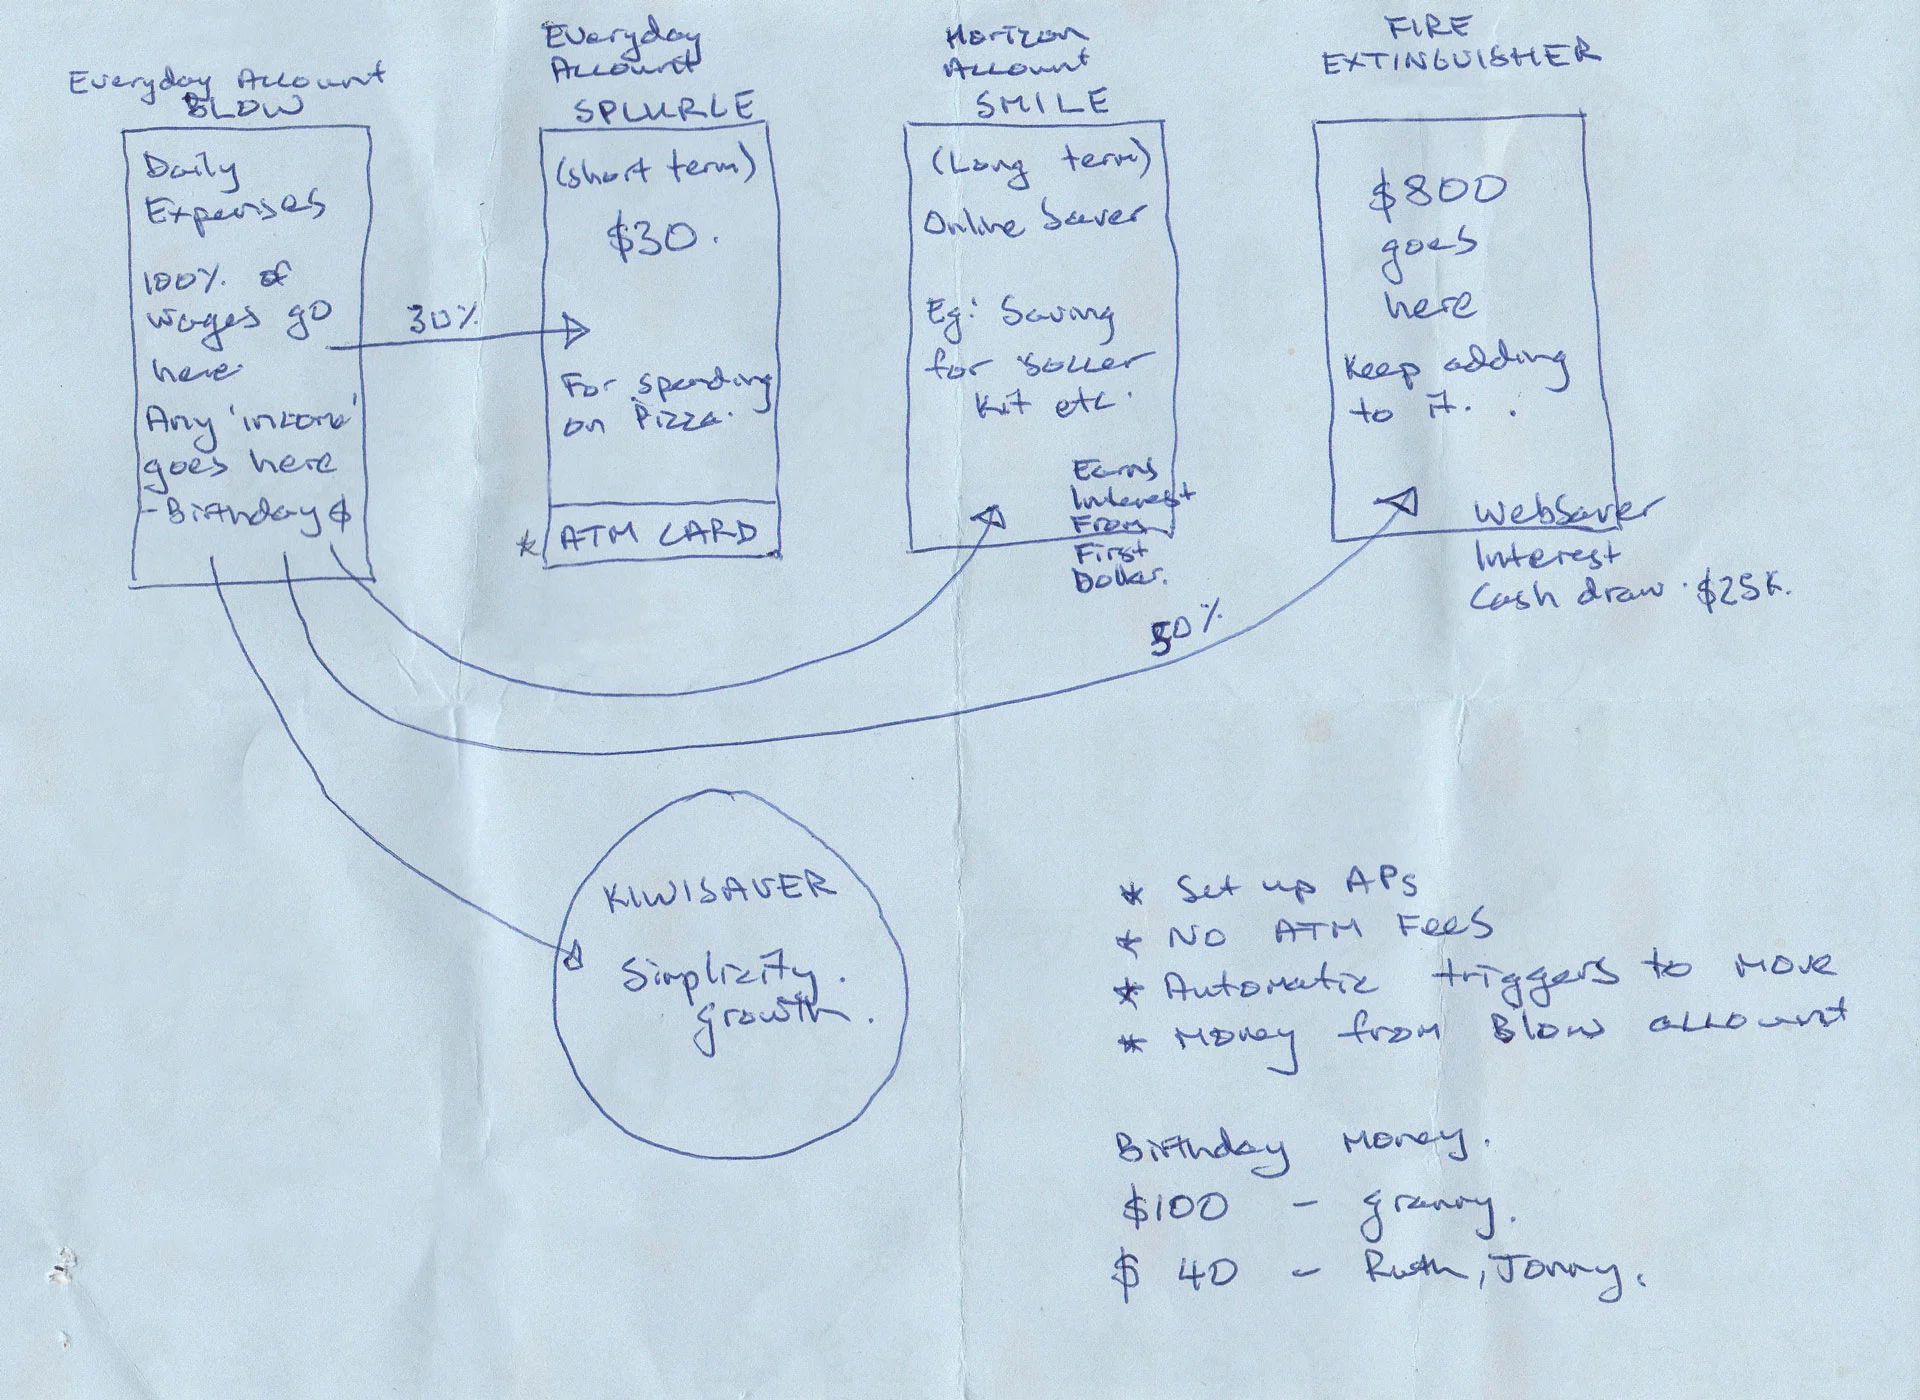 Everyday Account
BLOW
Daily
Expenses
100% of
wages go
here.
Any 'income'
goes here
-Birthday $
30%
Everyday
Account
SPLURLE
(short term)
$30.
For spending
on Pizza.
* ATM CARD
Horizon
Account
SMILE
(Long term)
Online Saver
Eg: Saving
for Soccer
Kit etc.
Earns
Interest
From
First
Dollar.
FIRE
EXTINGUISHER
$800
goes
here
Keep adding
to it.
WebSaver
Interest
Cash draw. $25K.
50%
KIWISAVER
Simplicity.
growth.
* Set up APs
* NO ATM FEES
* Automatic triggers to move
* Money from Blow account
Birthday Money.
$100 - granny.
$ 40 - Ruth, Jonny.